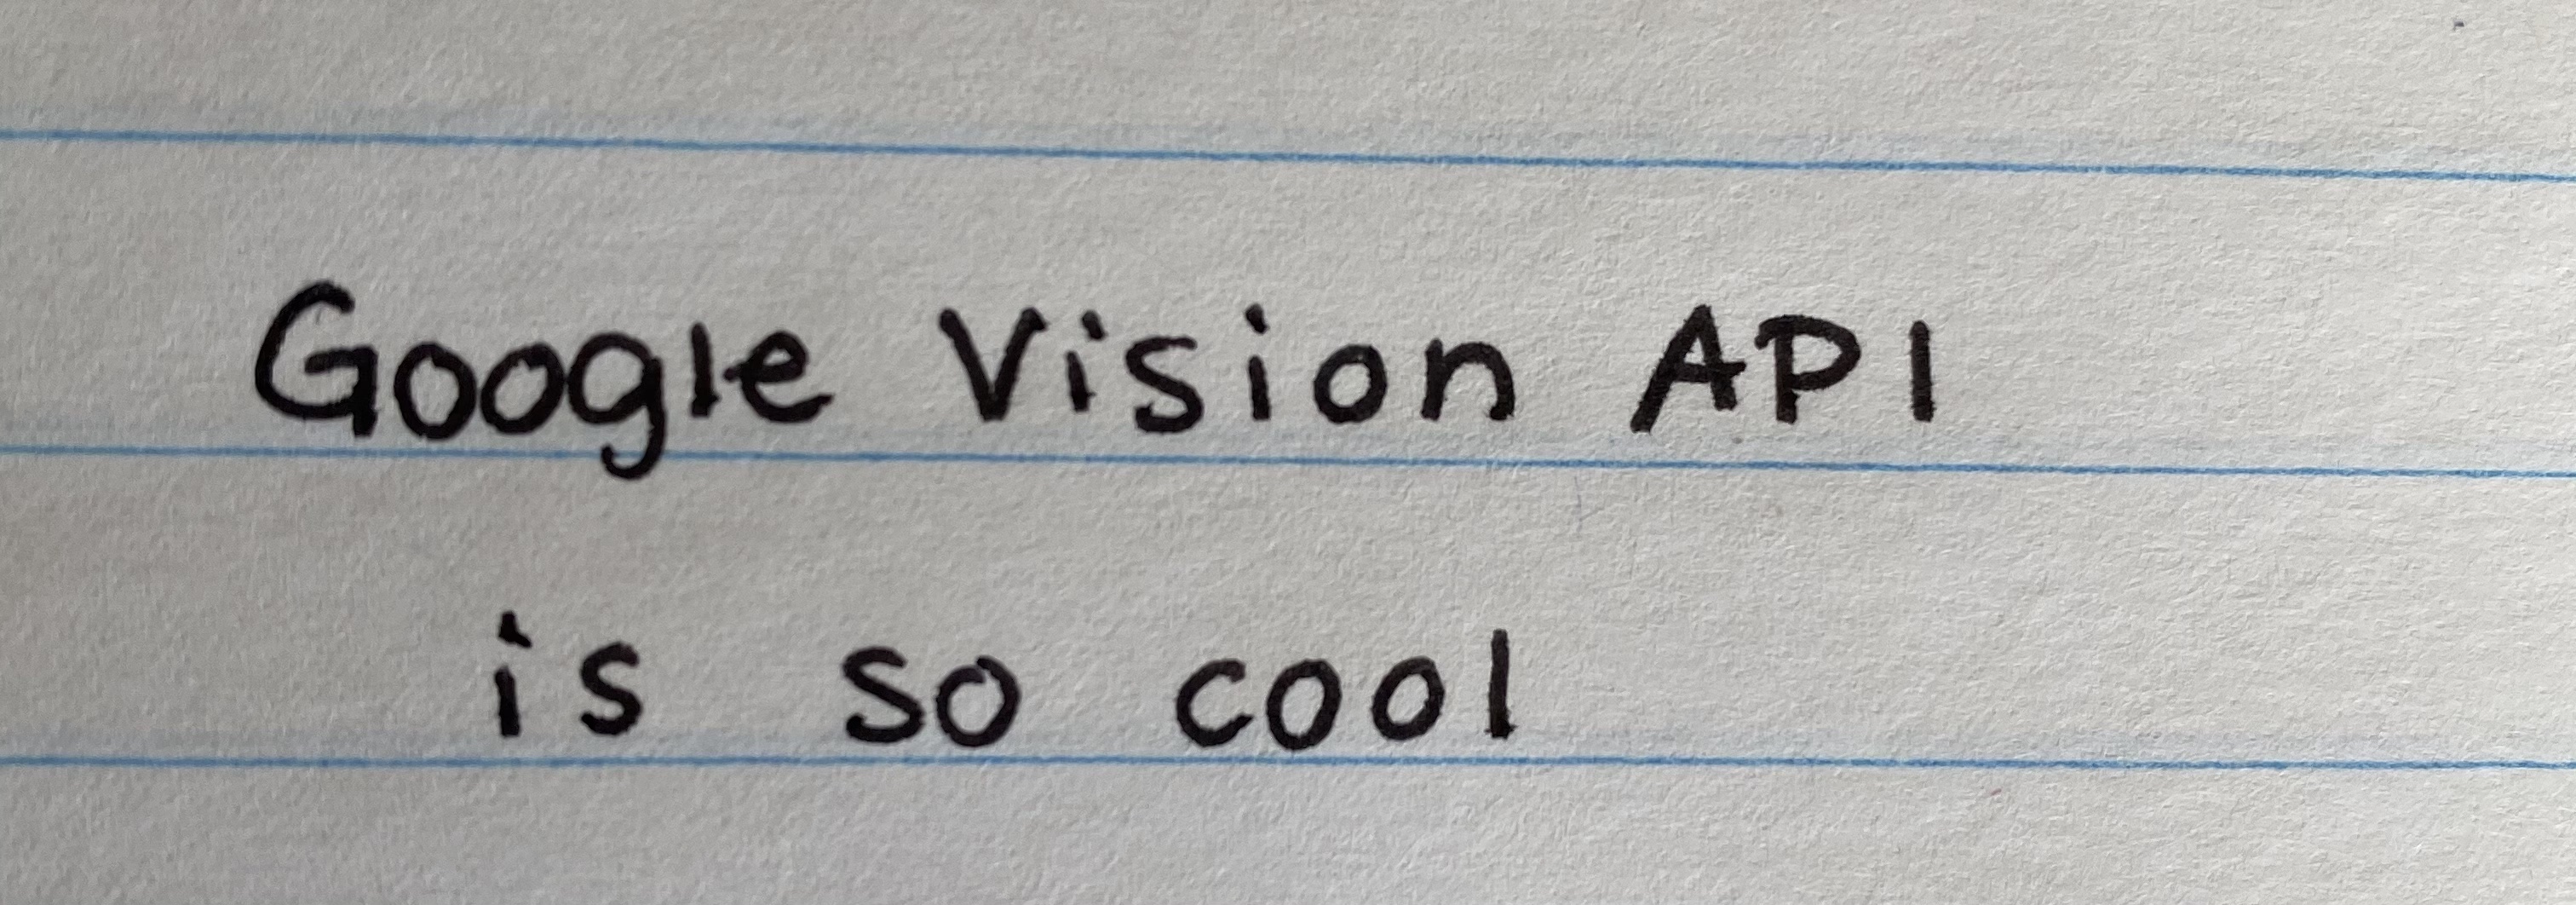 Google Vision API
is so cool